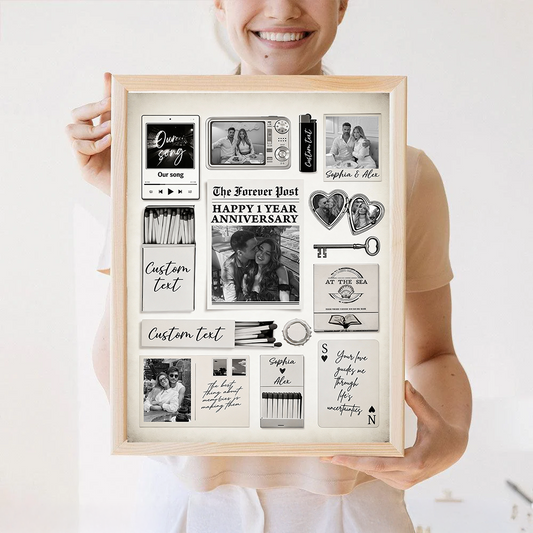 Our
song
Our song
Custom text
Sophia & Alex
The Forever Post
HAPPY 1 YEAR
ANNIVERSARY
Custom
text
AT THE SEA
Custom text
The best
thing about
memories is
making them
Sophia
Alex
S
Your love
guides me
through
life's
uncertainties
N